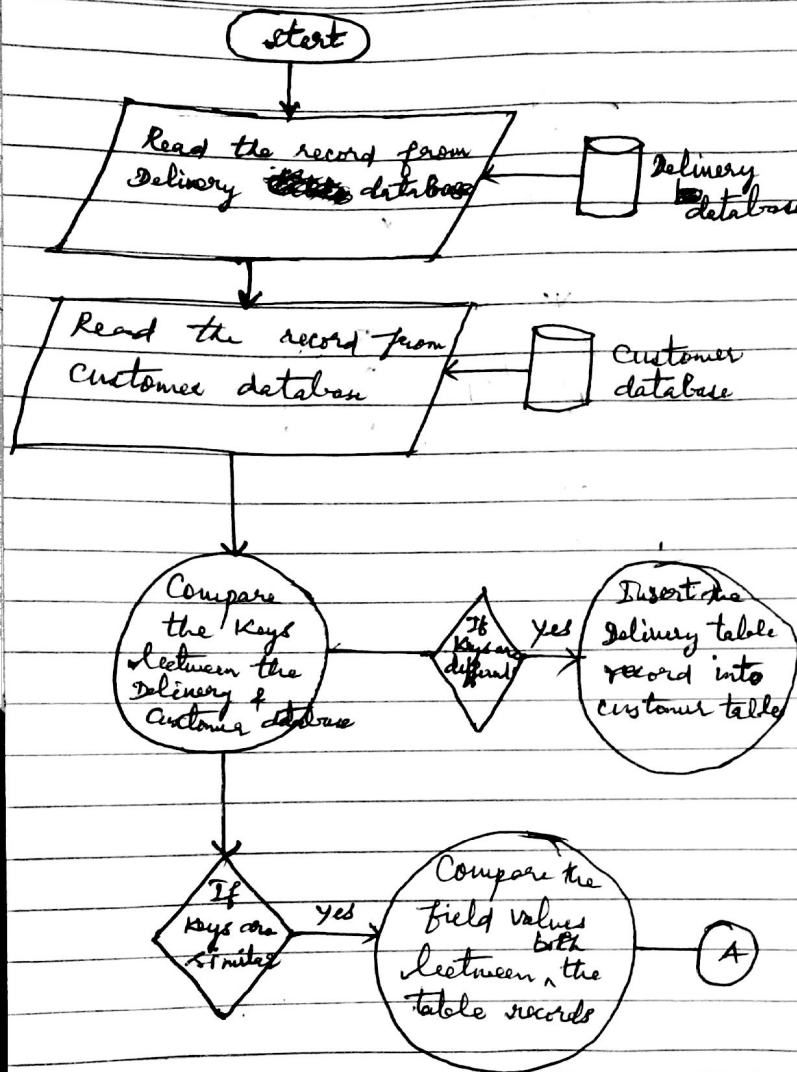 start
Read the record from
Delivery database
Delivery
database
Read the record from
Customer database
Customer
database
Compare
the Keys
between the
Delivery &
Customer database
If
Keys are
different
Yes
Insert the
Delivery table
record into
customer table
If
Keys are
similar
yes
Compare the
field values
both
between ^ the
table records
A